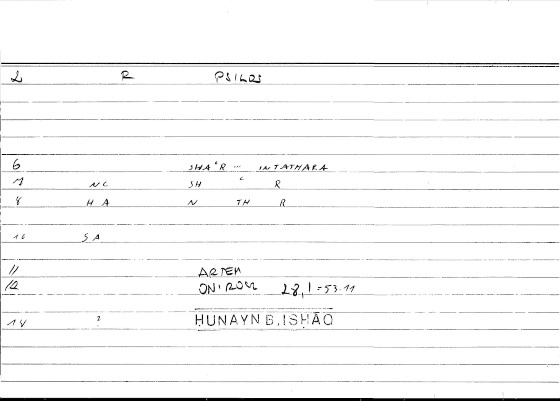 2 R PSILOS
6 SHAʿR ... INTATHARA
7 NC SH ʿ R
8 H A N TH R
10 SA
11 ARTEM
12 ONIROCR 28,1 = 53.11
14 ? ḤUNAYN B. ISḤĀQ